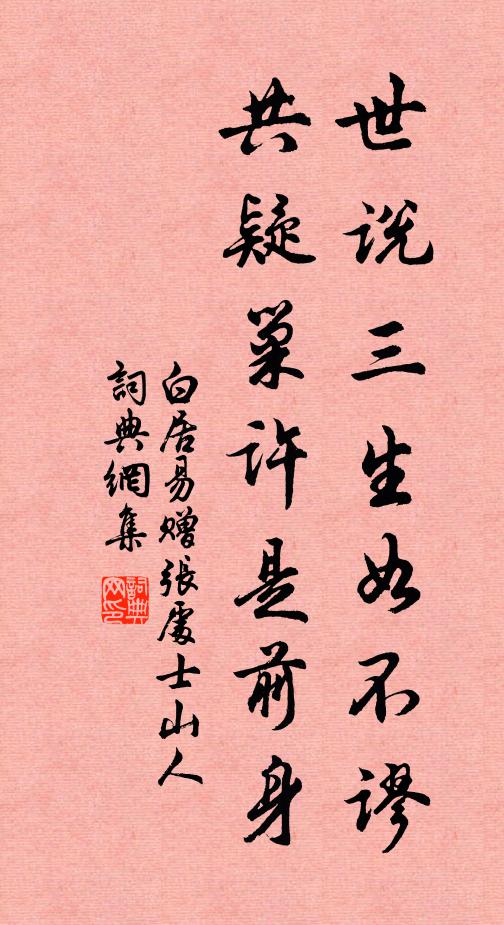 世说三生如不謬
共疑巢许是前身
白居易赠張處士山人
詞典網集
詞典网印